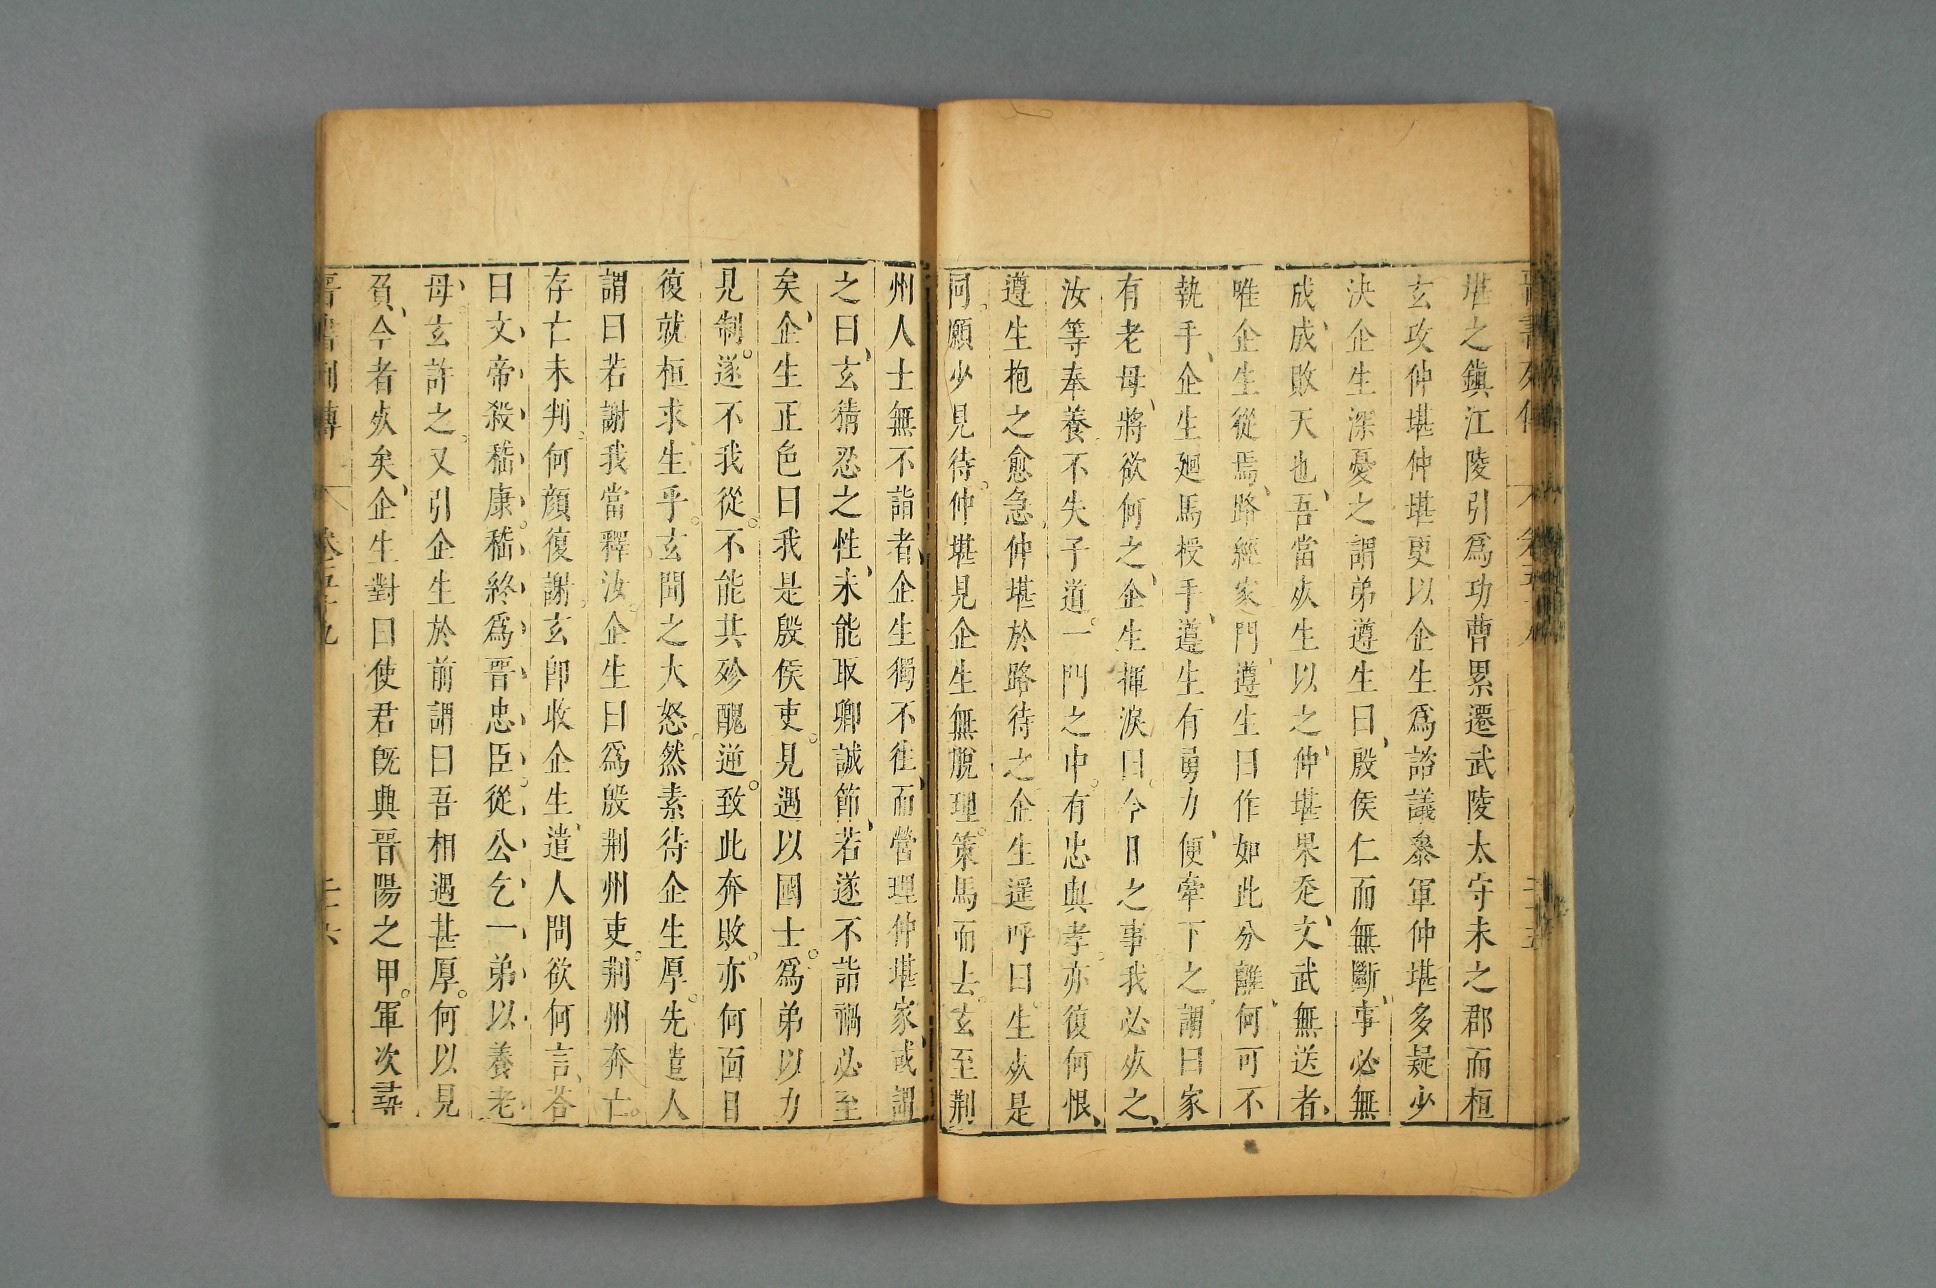 晉書列傳 卷五十九 二十五
堪之鎮江陵引爲功曹累遷武陵太守未之郡而桓
玄攻仲堪仲堪更以企生爲諮議參軍仲堪多疑少
決企生深憂之謂弟遵生曰殷侯仁而無斷事必無
成成敗天也吾當死生以之仲堪果走文武無送者
唯企生從焉路經家門遵生曰作如此分離何可不
執手企生廻馬授手遵生有勇力便牽下之謂曰家
有老母將欲何之企生揮淚曰今日之事我必死之
汝等奉養不失子道一門之中有忠與孝亦復何恨
遵生抱之愈急仲堪於路待之企生遥呼曰生死是
同願少見待仲堪見企生無脫理策馬而去玄至荆
州人士無不詣者企生獨不往而營理仲堪家或謂
之曰玄猜忍之性未能取卿誠節若遂不詣禍必至
矣企生正色曰我是殷侯吏見遇以國士爲弟以力
見制遂不我從不能共殄醜逆致此奔敗亦何面目
復就桓求生乎玄聞之大怒然素待企生厚先遣人
謂曰若謝我當釋汝企生曰爲殷荆州吏荆州奔亡
存亡未判何顔復謝玄即收企生遣人問欲何言答
曰文帝殺嵇康嵇紹爲晉忠臣從公乞一弟以養老
母玄許之又引企生於前謂曰吾相遇甚厚何以見
負今者死矣企生對曰使君旣興晉陽之甲軍次尋
晉書列傳 卷五十九 二十六